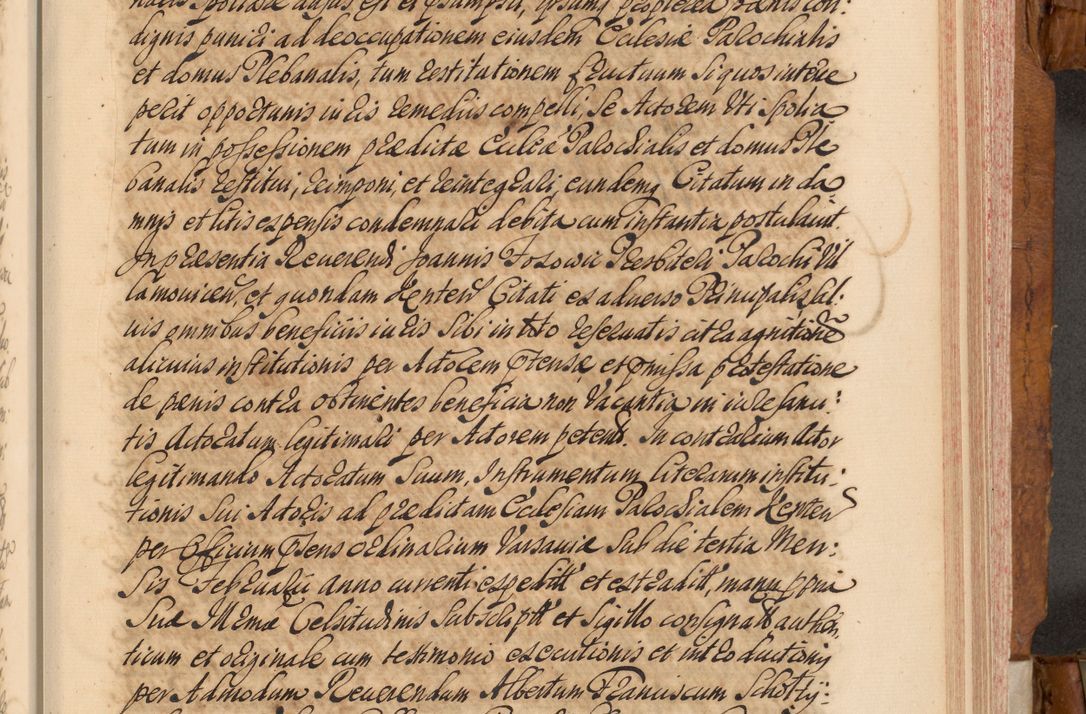 dignis puniri ad deoccupationem eiusdem Ecclesiæ Parochialis
et domus Plebanalis, tum restitutionem fructuum si quos interce
perit opportunis iuris remediis compelli, se Actorem uti spolia
tum in possessionem prædictæ Eccl̄iæ Parochialis et domus Ple
banalis restitui, reimponi, et reintegrari, eundemq Citatum in da
mnis et litis expensis condemnari debita cum instantia postulavit.
In præsentia Reverendi Joannis Presbiteri Parochi Vil
lamovicen, et quondam Kenten Citati ex adverso Principalis sal:
vis omnibus beneficiis iuris sibi in toto reservatis citra agnitionē
alicuius institutionis per Actorem ptensæ, et pmissa protestatione
de pœnis contra obtinentes beneficia non vacantia in iure sanci:
tis Actoratum legitimari per Actorem petent. In contrarium Actor
legitimando Actoratum suum, Instrumentum literarum institu:
tionis sui Actoris ad prædictam Ecclesiam Parochialem Kenten
per Officium ptens ordinarium Varsaviæ sub die tertia Men:
sis Februarii anno currenti expeditt et extraditt, manu ppria
suæ Illmæ Celsitudinis subscriptt et sigillo consignatt authen
ticum et originale cum testimonio executionis et introductionis
per Admodum Reverendum Albertum Franciscum